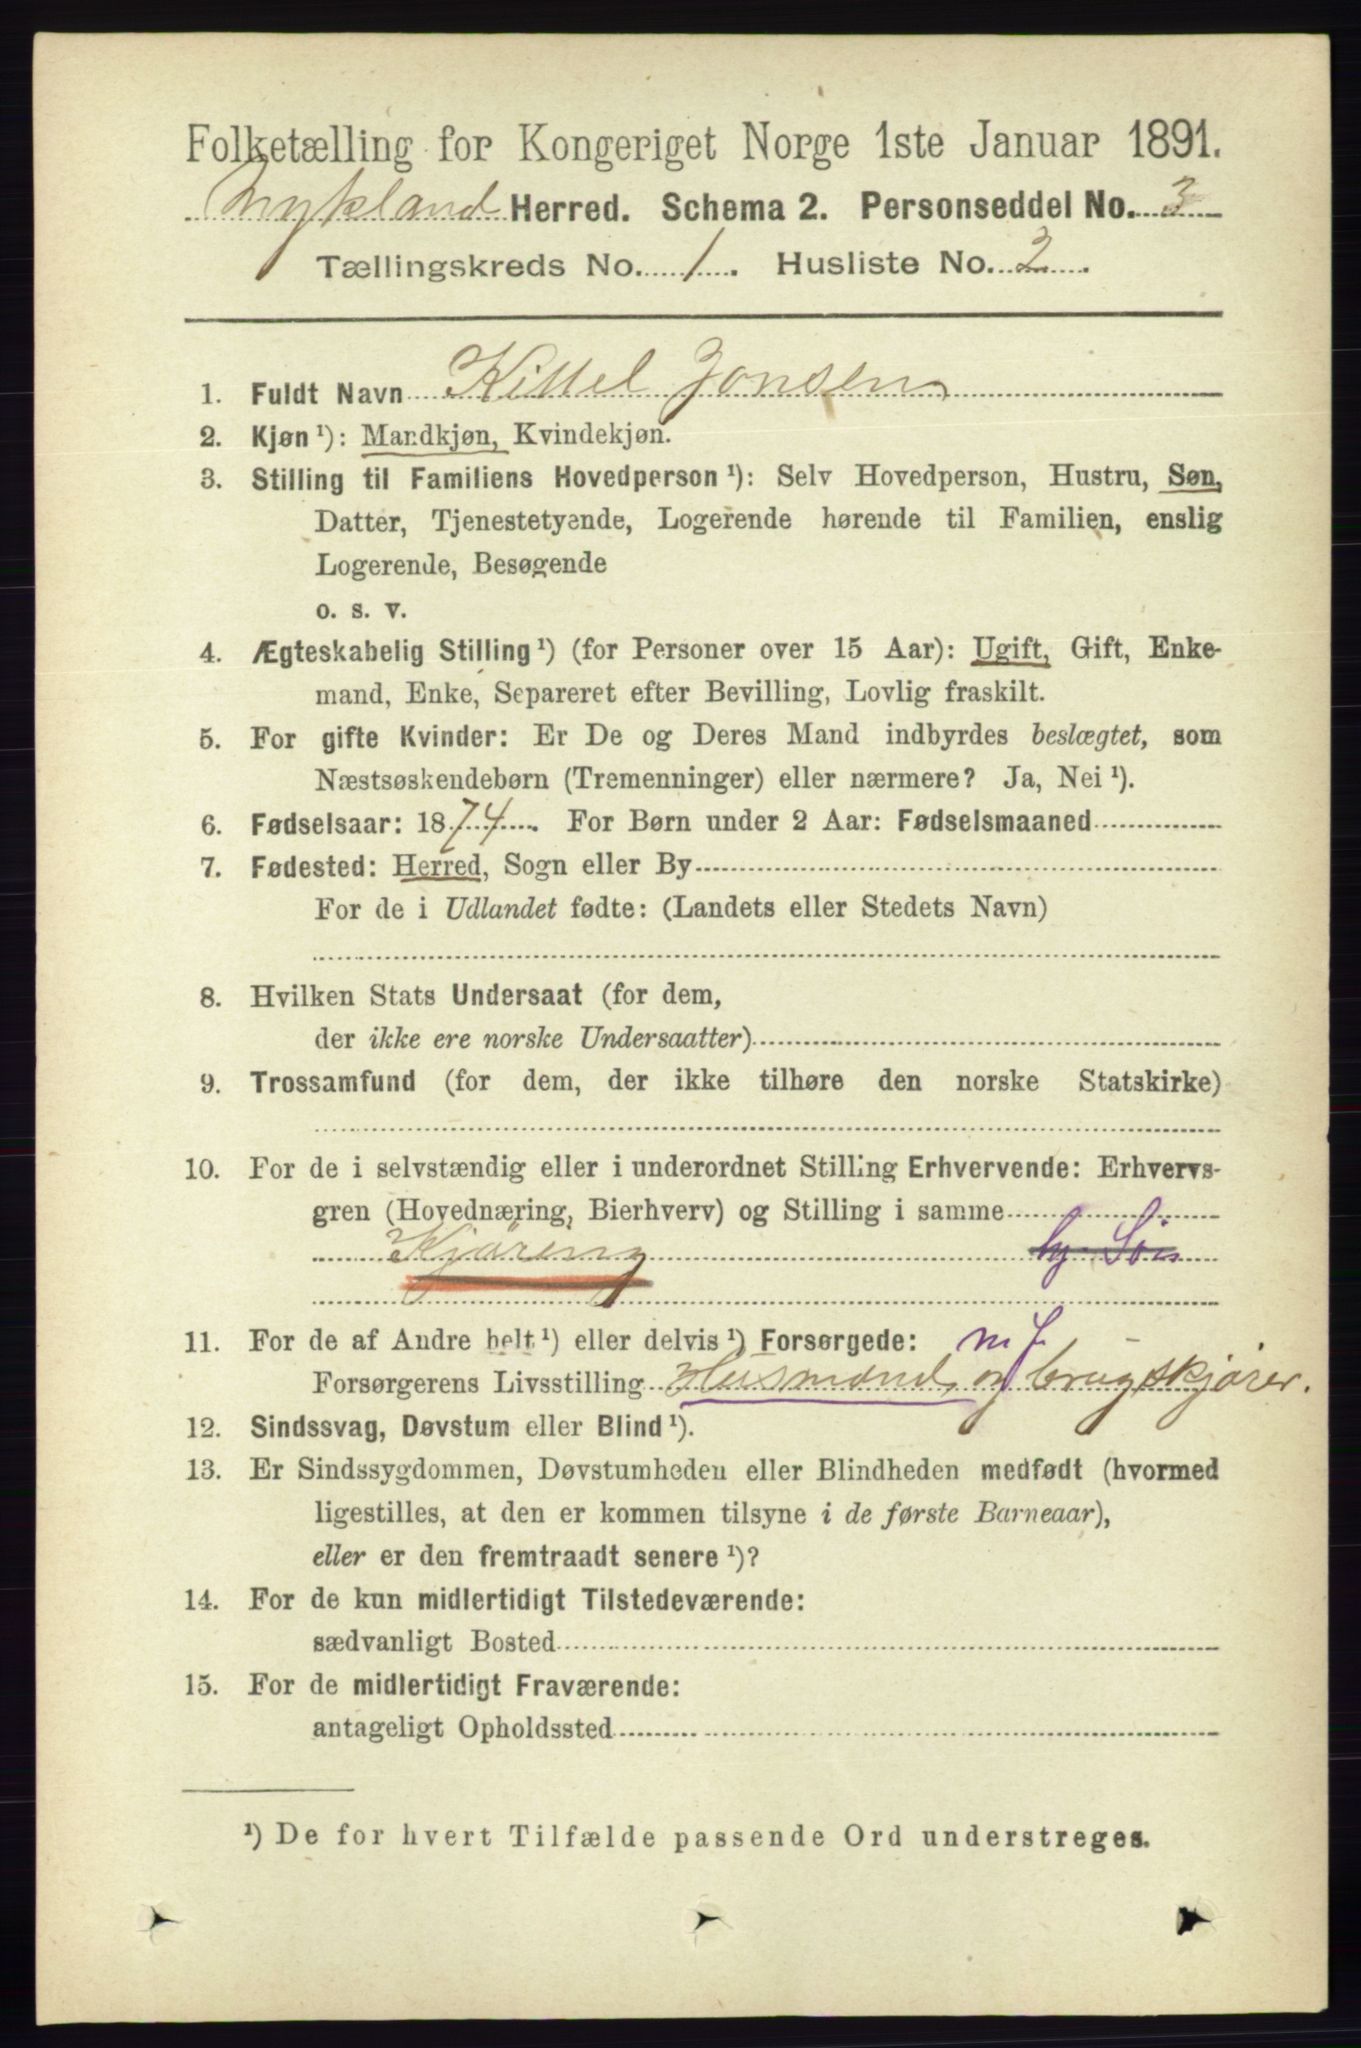 Folketælling for Kongeriget Norge 1ste Januar 1891.
Mykland Herred. Schema 2. Personseddel No. 3
Tællingskreds No. 1. Husliste No. 2.
1. Fuldt Navn Kittel Jonsen
2. Kjøn ¹): Mandkjøn, Kvindekjøn.
3. Stilling til Familiens Hovedperson ¹): Selv Hovedperson, Hustru, Søn,
Datter, Tjenestetyende, Logerende hørende til Familien, enslig
Logerende, Besøgende
o. s. v.
4. Ægteskabelig Stilling ¹) (for Personer over 15 Aar): Ugift, Gift, Enke-
mand, Enke, Separeret efter Bevilling, Lovlig fraskilt.
5. For gifte Kvinder: Er De og Deres Mand indbyrdes beslægtet, som
Næstsøskendebørn (Tremenninger) eller nærmere? Ja, Nei ¹).
6. Fødselsaar: 1874. For Børn under 2 Aar: Fødselsmaaned
7. Fødested: Herred, Sogn eller By
For de i Udlandet fødte: (Landets eller Stedets Navn)
8. Hvilken Stats Undersaat (for dem,
der ikke ere norske Undersaatter)
9. Trossamfund (for dem, der ikke tilhøre den norske Statskirke)
10. For de i selvstændig eller i underordnet Stilling Erhvervende: Erhvervs-
gren (Hovednæring, Bierhverv) og Stilling i samme
Kjøring
11. For de af Andre helt ¹) eller delvis ¹) Forsørgede:
Forsørgerens Livsstilling Husmand og brugskjører.
12. Sindssvag, Døvstum eller Blind ¹).
13. Er Sindssygdommen, Døvstumheden eller Blindheden medfødt (hvormed
ligestilles, at den er kommen tilsyne i de første Barneaar),
eller er den fremtraadt senere ¹)?
14. For de kun midlertidigt Tilstedeværende:
sædvanligt Bosted
15. For de midlertidigt Fraværende:
antageligt Opholdssted
¹) De for hvert Tilfælde passende Ord understreges.